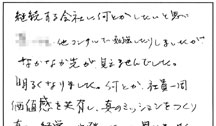 継続する会社に何とかしたいと思い
他コンサルで勉強したりしましたが
なかなか先が見えませんでした。
明るくなりました。何とか、社員一同
価値感を共有し、真のミッションをつくり